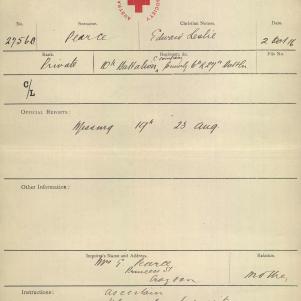 SOCIETY
No. Surname. Christian Names. Date.
2756B Pearce Edward Leslie 2 Dec 16
Rank: Regiment, &c. File No.
Private 10th Battalion, C company, formerly 6th & 27th Battln
C/L
OFFICIAL REPORTS:
Missing 19th 23 Aug.
Other Information:
Inquirer's Name and Address. Relation.
Mrs E. Pearce
Princes St
Croydon
Mother
Instructions: Ascertain